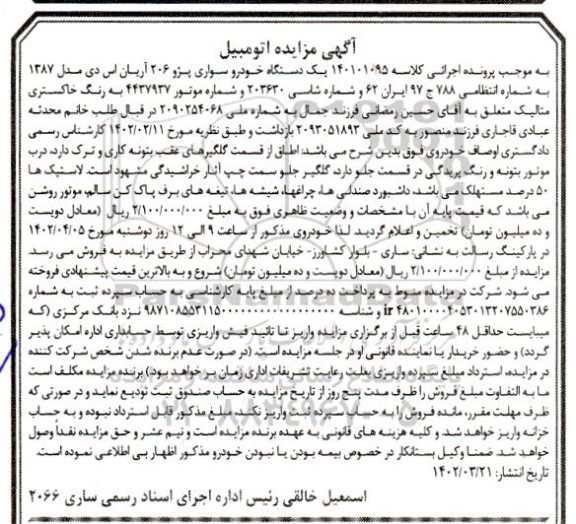 آگهی مزایده اتومبیل
به موجب پرونده اجرائی کلاسه ۱۴۰۱۰۱۰۹۵ یک دستگاه خودرو سواری پژو ۲۰۶ آریان اس دی مدل ۱۳۸۷
به شماره انتظامی ۷۸۸ ج ۹۷ ایران ۶۲ و شماره شاسی ۲۰۳۶۳۰ و شماره موتور ۴۴۳۷۹۳۷ به رنگ خاکستری
متالیک متعلق به آقای حسین رمضانی فرزند جمال به شماره ملی ۲۰۹۰۲۵۴۰۶۸ در قبال طلب خانم محدثه
عبادی قاجاری فرزند منصور به کد ملی ۲۰۹۳۰۵۱۸۹۳ بازداشت و طبق نظریه مورخ ۱۴۰۲/۰۲/۱۱ کارشناس رسمی
دادگستری اوصاف خودروی فوق بدین شرح می باشد: اطاق از قسمت گلگیرهای عقب بتونه کاری و ترک دارد، درب
موتور بتونه و رنگ پریدگی در قسمت جلو دارد، گلگیر جلو سمت چپ آثار خراشیدگی مشهود است. لاستیک ها
۵۰ درصد مستهلک می باشد، داشبورد صندلی ها، چراغها، شیشه ها، تیغه های برف پاک کن سالم، موتور روشن
می باشد که قیمت پایه آن با مشخصات و وضعیت ظاهری فوق به مبلغ ۲/۱۰۰/۰۰۰/۰۰۰ ریال (معادل دویست
و ده میلیون تومان) تخمین و اعلام گردید. لذا خودروی مذکور از ساعت ۹ الی ۱۲ روز دوشنبه مورخ ۱۴۰۲/۰۴/۰۵
در پارکینگ رسالت به نشانی: ساری - بلوار کشاورز- خیابان شهدای محراب از طریق مزایده به فروش می رسد.
مزایده از مبلغ ۲/۱۰۰/۰۰۰/۰۰۰ ریال (معادل دویست و ده میلیون تومان) شروع و به بالاترین قیمت پیشنهادی فروخته
می شود. شرکت در مزایده منوط به پرداخت ده درصد از مبلغ پایه کارشناسی به حساب سپرده ثبت به شماره
ir ۴۸۰۱۰۰۰۰۴۰۵۳۰۱۳۲۰۷۵۵۰۳۸۶ و شناسه ۹۸۷۱۰۸۵۵۳۱۱۵۰۰۰۰۰۰۰۰۰۰۰۰۰۰۰۰۰ نزد بانک مرکزی (که
میبایست حداقل ۴۸ ساعت قبل از برگزاری مزایده واریز تا تائید فیش واریزی توسط حسابداری اداره امکان پذیر
گردد) و حضور خریدار یا نماینده قانونی او در جلسه مزایده است. (در صورت عدم برنده شدن شخص شرکت کننده
در مزایده، استرداد مبلغ سپرده واریزی بعلت رعایت تشریفات اداری زمان بر خواهد بود) برنده مزایده مکلف است
ما به التفاوت مبلغ فروش را ظرف مدت پنج روز از تاریخ مزایده به حساب صندوق ثبت تودیع نماید و در صورتی که
ظرف مهلت مقرر، مانده فروش را به حساب سپرده ثبت واریز نکند، مبلغ مذکور قابل استرداد نبوده و به حساب
خزانه واریز خواهد شد. و کلیه هزینه های قانونی به عهده برنده مزایده است و نیم عشر و حق مزایده نقداً وصول
خواهد شد. ضمنا وکیل بستانکار در خصوص بیمه بودن یا نبودن خودرو مذکور اظهار بی اطلاعی نموده است.
تاریخ انتشار: ۱۴۰۲/۰۳/۲۱
اسمعیل خالقی رئیس اداره اجرای اسناد رسمی ساری ۲۰۶۶